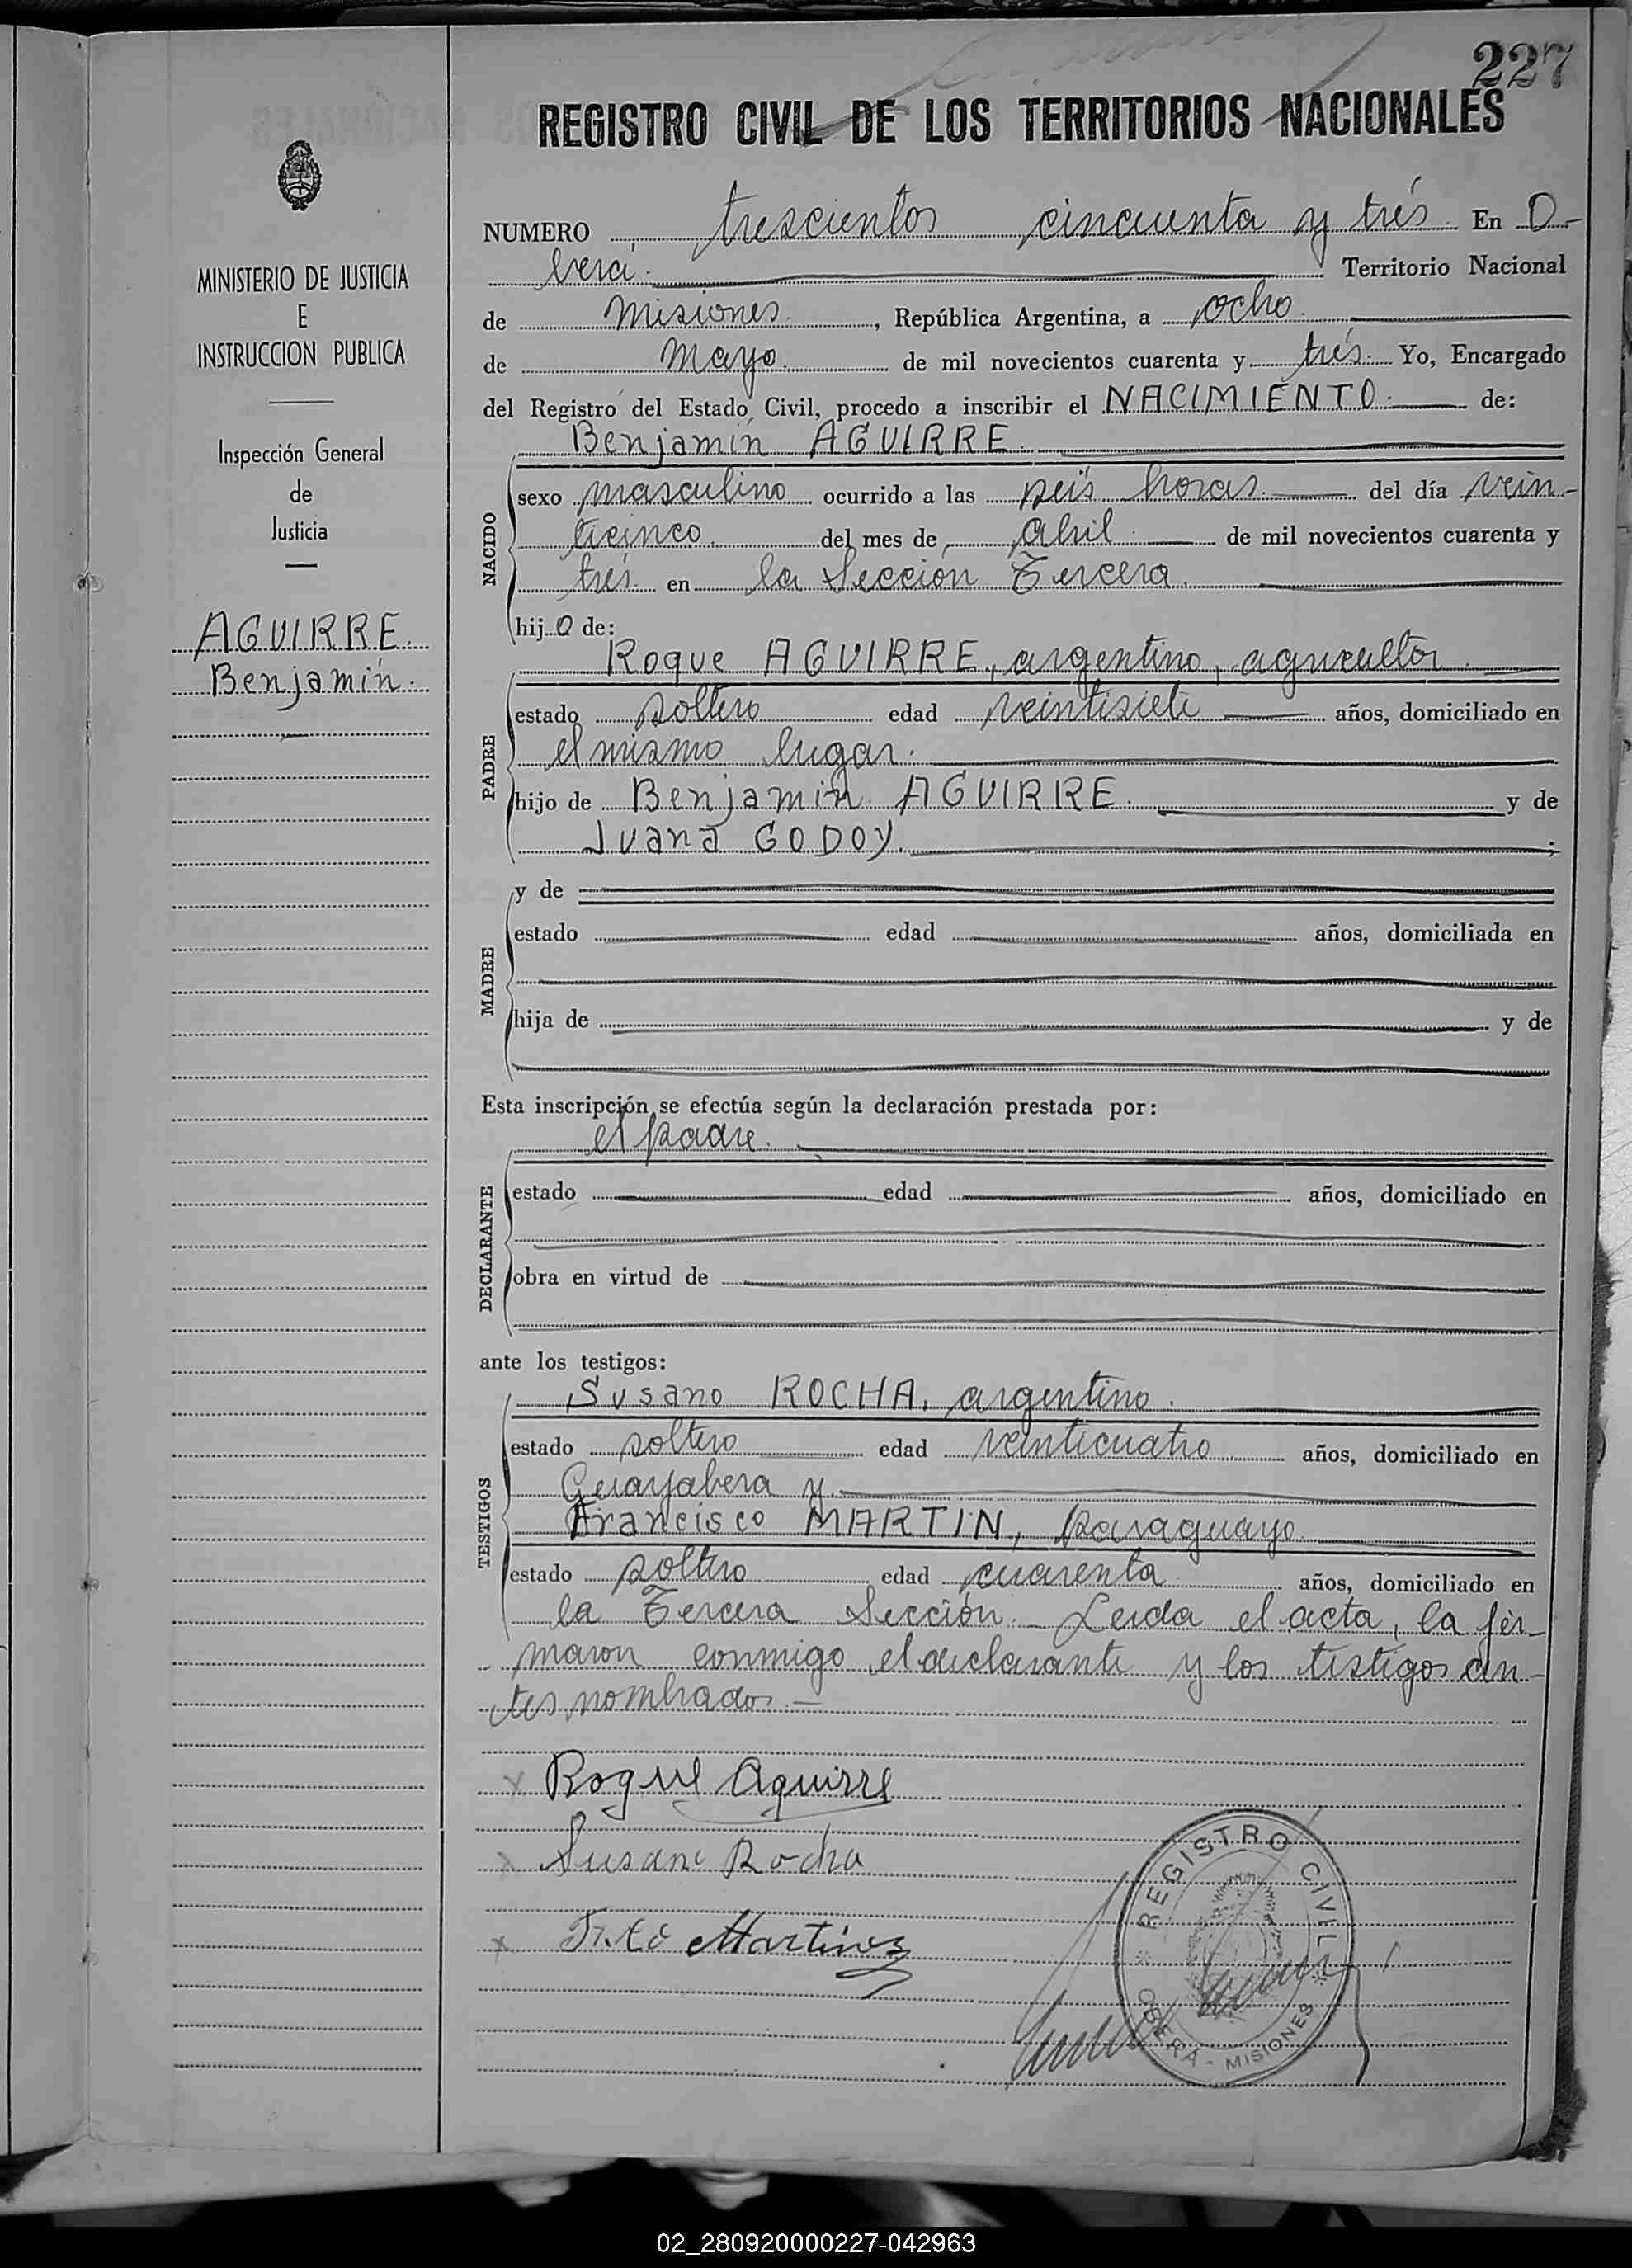 227
REGISTRO CIVIL DE LOS TERRITORIOS NACIONALES
MINISTERIO DE JUSTICIA
E
INSTRUCCION PUBLICA
Inspección General
de
Justicia
AGUIRRE.
Benjamín.
NUMERO trescientos cincuenta y trés. En O-
berá. Territorio Nacional
de Misiones., República Argentina, a ocho.
de Mayo. de mil novecientos cuarenta y trés. Yo, Encargado
del Registro del Estado Civil, procedo a inscribir el NACIMIENTO. de:
Benjamín AGUIRRE.
NACIDO
sexo masculino ocurrido a las seis horas. del día vein-
ticinco. del mes de Abril de mil novecientos cuarenta y
trés. en la Sección Tercera.
hijo de:
PADRE
Roque AGUIRRE, argentino, agricultor.
estado soltero edad veintisiete años, domiciliado en
el mismo lugar.
hijo de Benjamín AGUIRRE. y de
Juana GODOY. ;
MADRE
y de
estado edad años, domiciliada en
hija de y de
Esta inscripción se efectúa según la declaración prestada por:
el padre.
DECLARANTE
estado edad años, domiciliado en
obra en virtud de
ante los testigos:
TESTIGOS
Susano ROCHA, argentino.
estado soltero edad veinticuatro años, domiciliado en
Guayabera y
Francisco MARTIN, paraguayo.
estado soltero edad cuarenta años, domiciliado en
la Tercera Sección. Leída el acta, la fir-
maron conmigo el declarante y los testigos an-
tes nombrados.-
x Roque Aguirre
x Susano Rocha
x Fr.co Martinez
REGISTRO CIVIL
OBERÁ - MISIONES
02_280920000227-042963